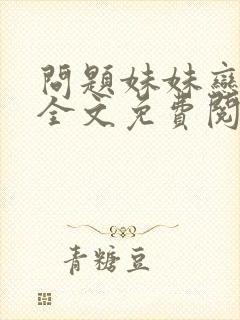 問題妹妹戀
全文免費閱
青糖豆